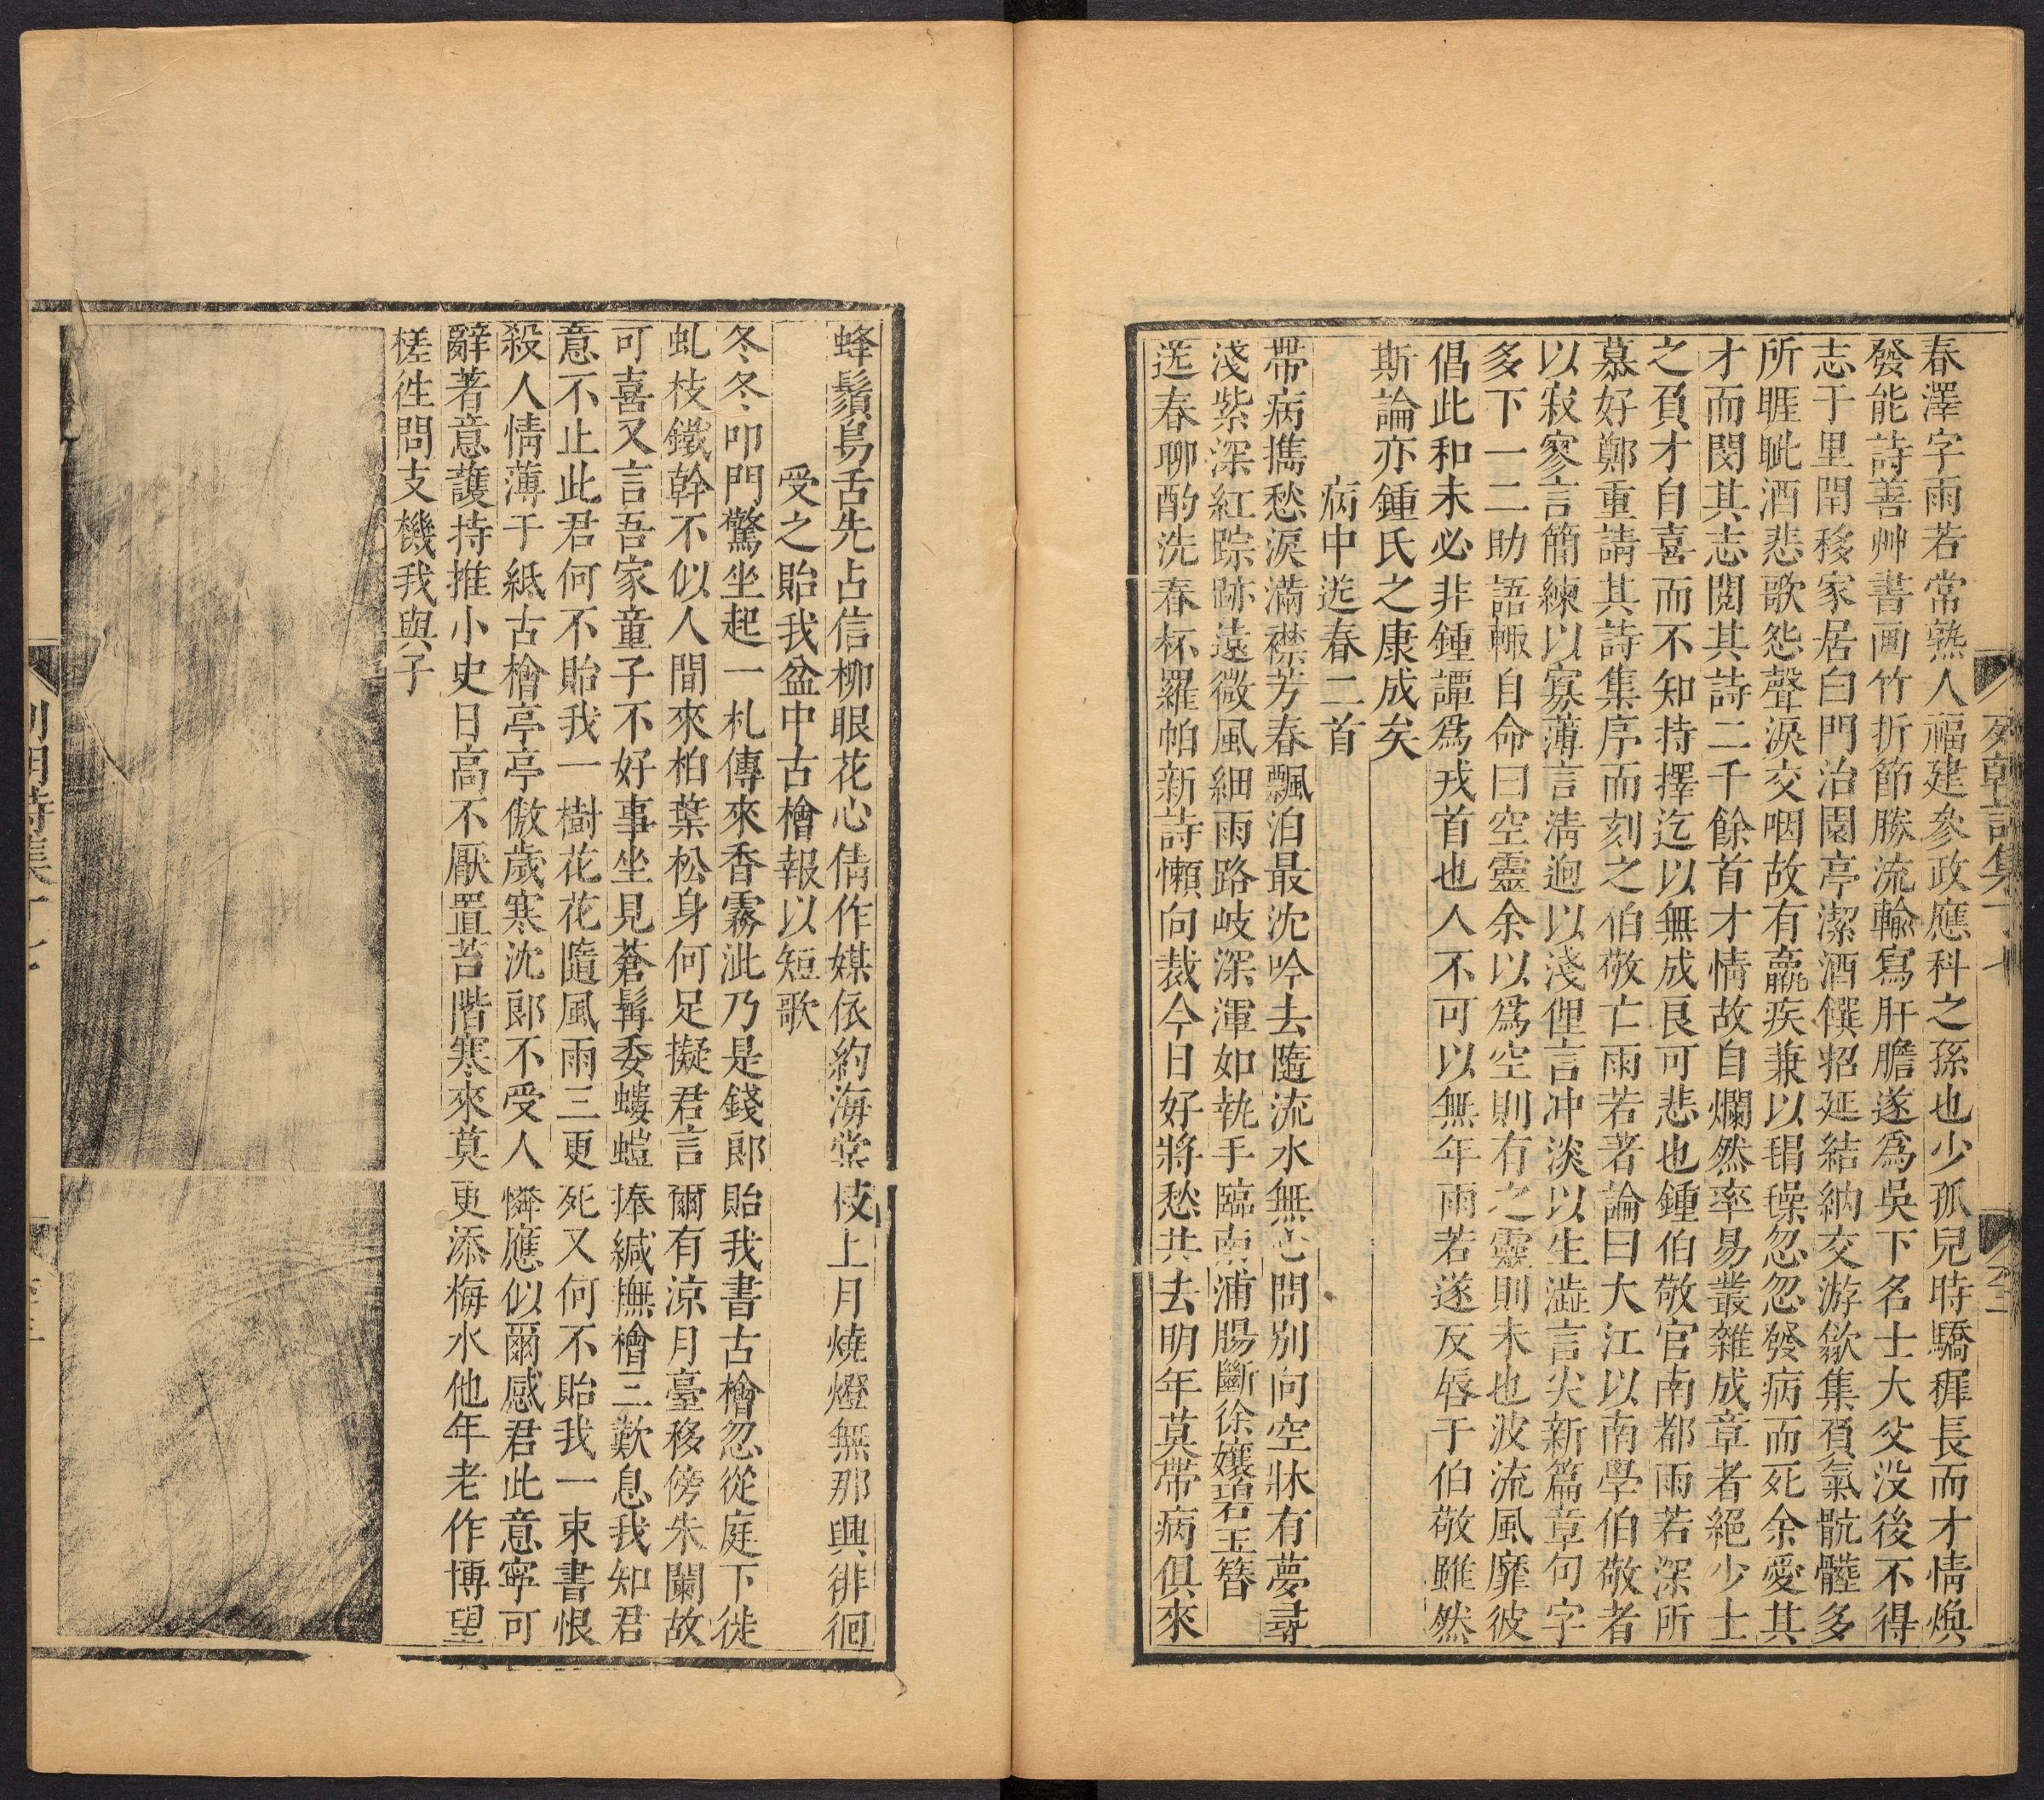 春澤字雨若常熟人福建參政應科之孫也少孤兒時驕穉長而才情煥
發能詩善艸書画竹折節勝流輸寫肝膽遂爲吳下名士大父没後不得
志于里閈移家居白門治園亭潔酒饌招延結納交游歙集負氣骯髒多
所睚眦酒悲歌怨聲淚交咽故有羸疾兼以狷躁忽忽發病而死余愛其
才而閔其志閱其詩二千餘首才情故自爛然率易叢雜成章者絕少士
之負才自喜而不知持擇迄以無成良可悲也鍾伯敬官南都雨若深所
慕好鄭重請其詩集序而刻之伯敬亡雨若著論曰大江以南學伯敬者
以寂寥言簡練以寡薄言清逈以淺俚言冲淡以生澁言尖新篇章句字
多下一二助語輙自命曰空靈余以爲空則有之靈則未也波流風靡彼
倡此和未必非鍾譚爲戎首也人不可以無年雨若遂反唇于伯敬雖然
斯論亦鍾氏之康成矣
病中送春二首
帶病攜愁淚滿襟芳春飄泊最沈吟去隨流水無心問別向空牀有夢尋
淺紫深紅踪跡遠微風細雨路岐深渾如執手臨南浦腸斷徐孃碧玉簪
送春聊酌洗春杯羅帕新詩懶向裁今日好將愁共去明年莫帶病俱來
列朝詩集丁七
蜂鬚鳥舌先占信柳眼花心倩作媒依約海棠伎上月燒燈無那興徘徊
受之貽我盆中古檜報以短歌
冬冬叩門驚坐起一札傳來香霧泚乃是錢郎貽我書古檜忽從庭下徙
虬枝鐵幹不似人間來柏葉松身何足擬君言爾有涼月臺移傍朱闌故
可喜又言吾家童子不好事坐見蒼髯委螻螘捧緘撫檜三歎息我知君
意不止此君何不貽我一樹花花隨風雨三更死又何不貽我一束書恨
殺人情薄于紙古檜亭亭傲歲寒沈郎不受人憐應似爾感君此意寧可
辭著意護持推小史日高不厭置苔階寒來莫更添梅水他年老作博望
槎徃問支機我與子
列朝詩集丁七